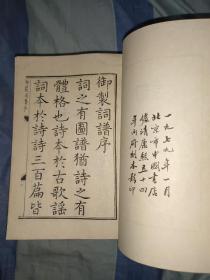 一九七九年一月
北京市中國書店
據清康熙五十四
年內府刻本影印
御製詞譜序
詞之有圖譜猶詩之有
體格也詩本於古歌謠
詞本於詩詩三百篇皆